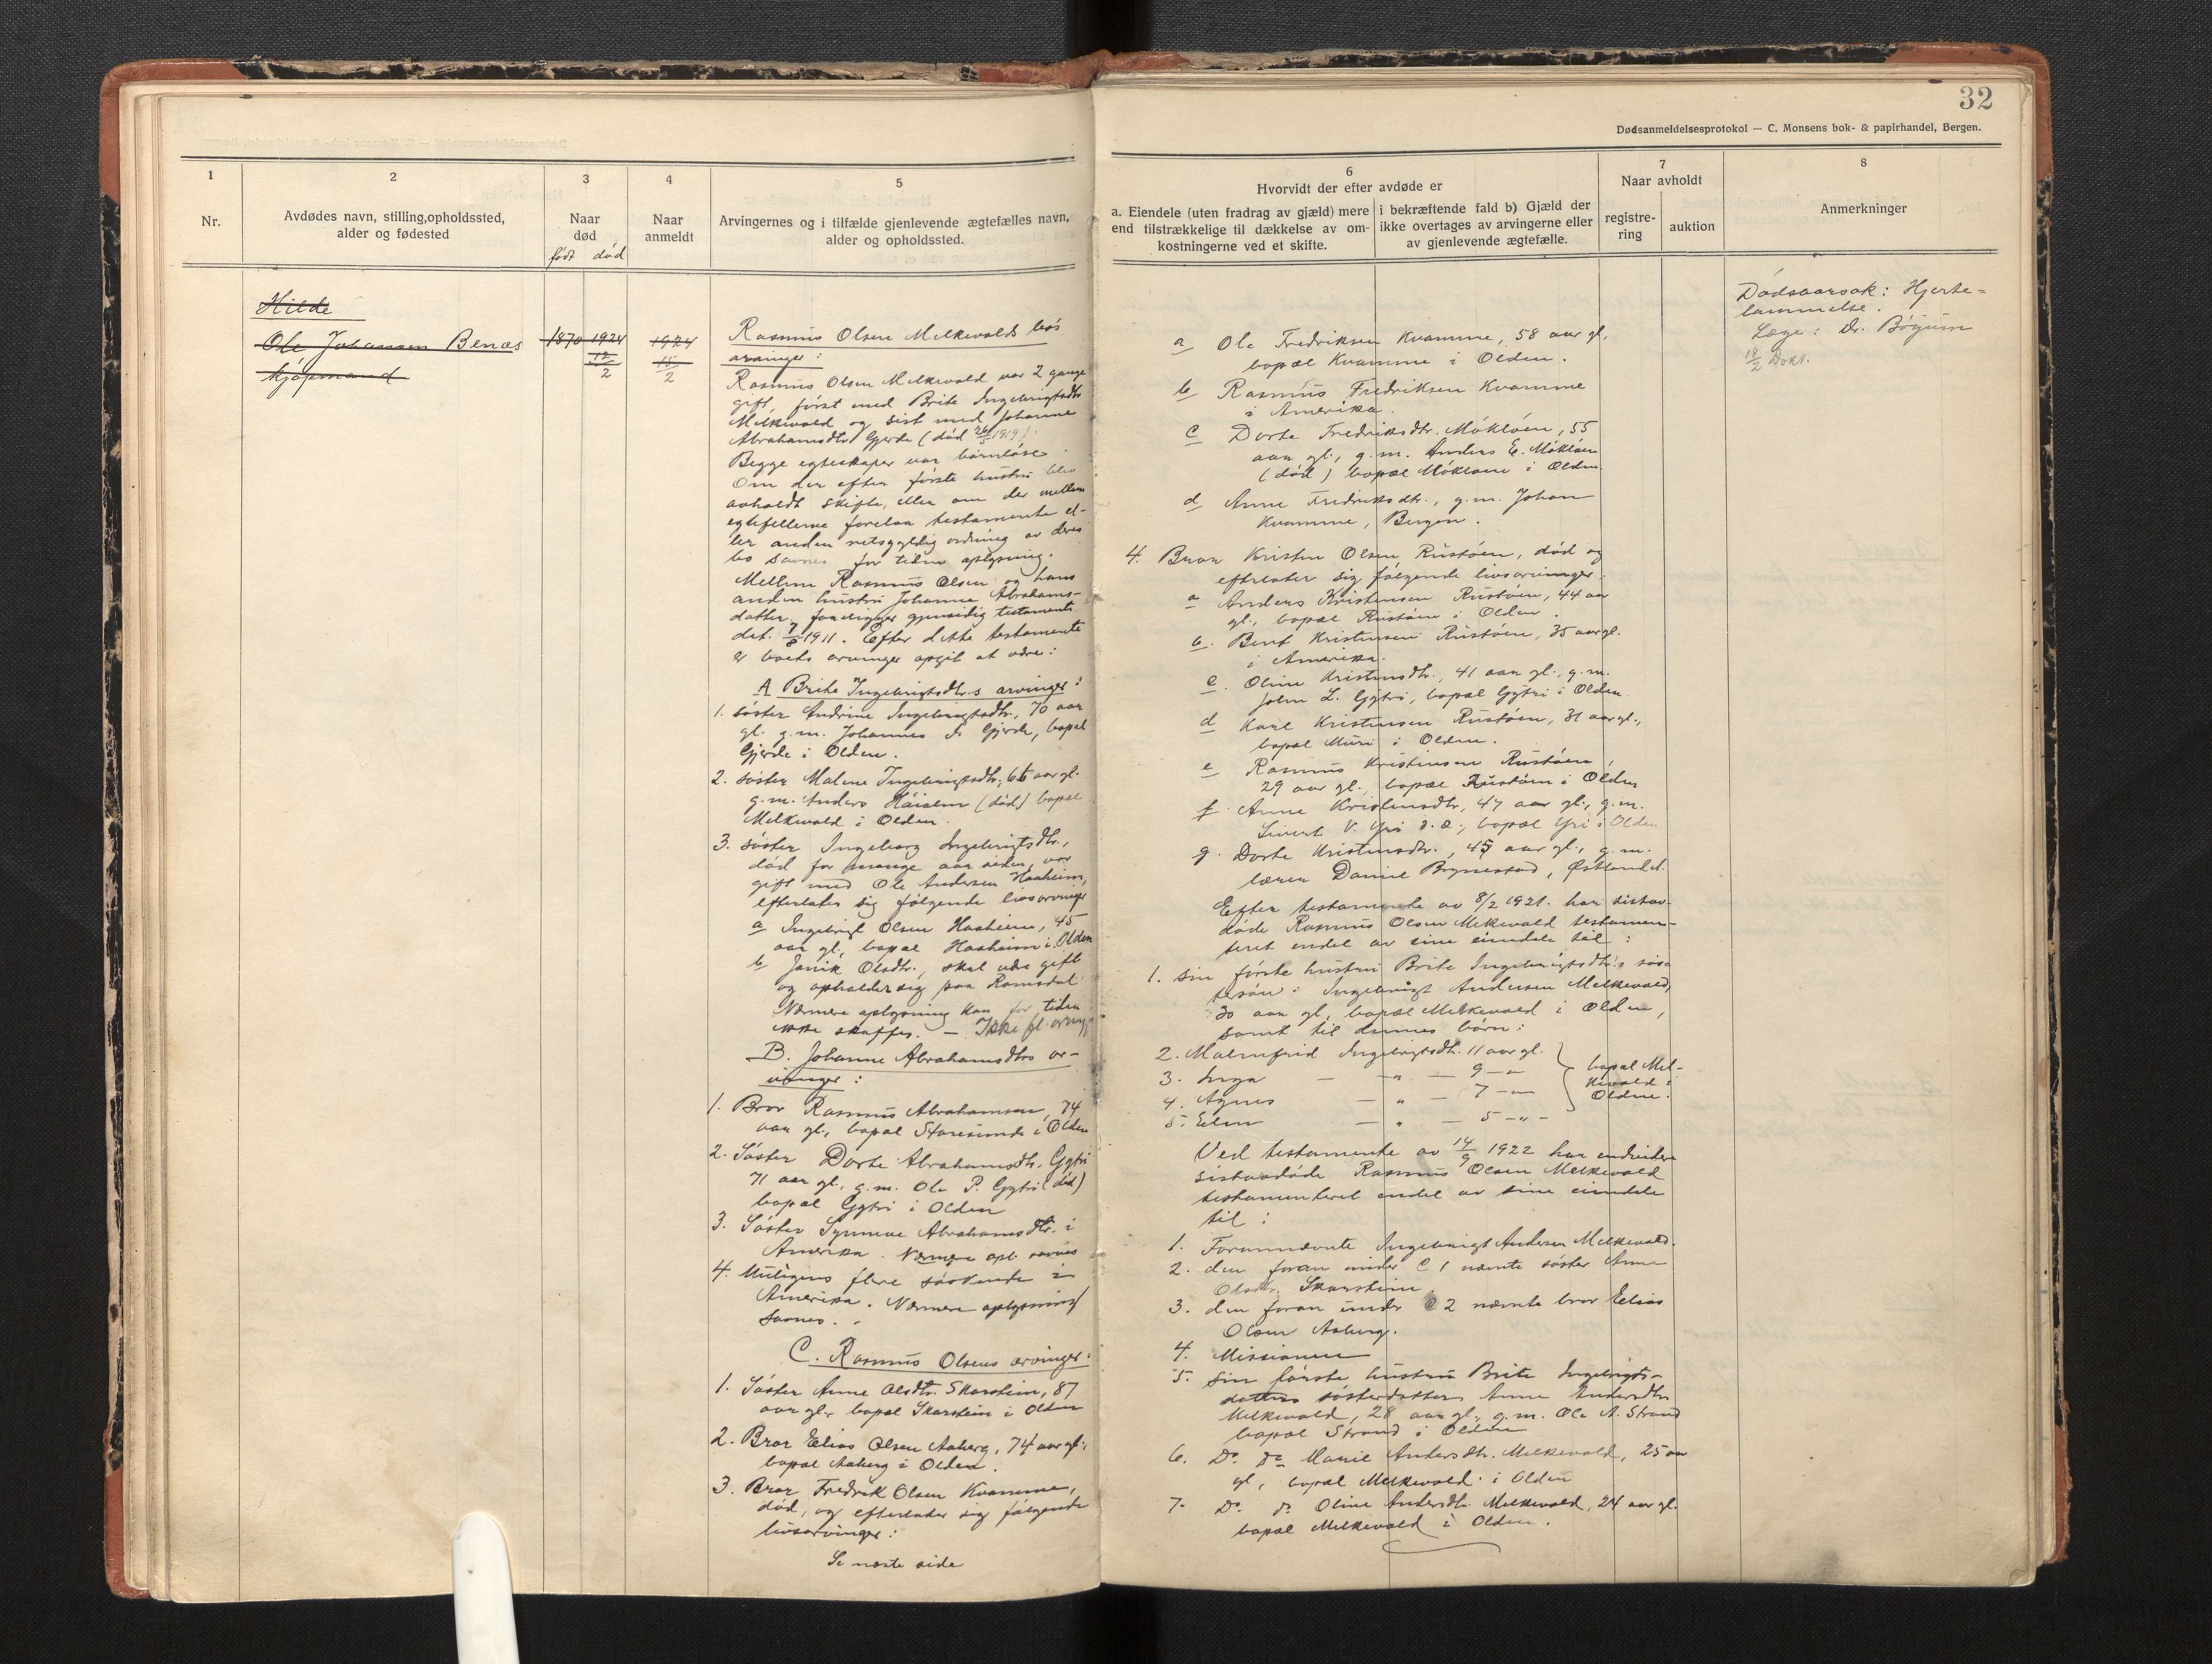 32
Dødsanmeldelsesprotokol — C. Monsens bok- & papirhandel, Bergen.
1
Nr.
2
Avdødes navn, stilling, opholdssted,
alder og fødested
3
Naar
død
født død
4
Naar
anmeldt
5
Arvingernes og i tilfælde gjenlevende ægtefælles navn,
alder og opholdssted.
6
Hvorvidt der efter avdøde er
a. Eiendele (uten fradrag av gjæld) mere
end tilstrækkelige til dækkelse av om-
kostningerne ved et skifte.
i bekræftende fald b) Gjæld der
ikke overtages av arvingerne eller
av gjenlevende ægtefælle.
7
Naar avholdt
registre-
ring
auktion
8
Anmerkninger
Hilde
Ole Johansen Benæs
kjøpmand
1870
1924
12
2
1924
15
2
Rasmus Olsen Melkevolds bos
arvinger:
Rasmus Olsen Melkevold var 2 gange
gift, først med Brite Ingebrigtsdtr
Melkevold og sist med Johanne
Abrahamsdtr Gjerde (død 26/5 1919).
Begge egteskaper var barnløse.
Om der efter første hustru blev
avholdt skifte, eller om der mellem
egtefellerne forelaa testamente el-
ler anden retsgyldig ordning av deres
bo savnes for tiden oplysning.
Mellem Rasmus Olsen og hans
anden hustru Johanne Abrahams-
datter foreligger gjensidig testamente
dat. 7/8 1911. Efter dette testamente
er boets arvinger opgit at være:
A Brite Ingebrigtsdtr.s arvinger:
1. søster Andrine Ingebrigtsdtr., 70 aar
gl. g.m. Johannes Gjerde, bopæl
Gjerde i Olden.
2. søster Malene Ingebrigtsdtr., aar gl.
g.m. Anders (død) bopæl
Melkevold i Olden.
3. søster Ingeborg Ingebrigtsdtr.,
død for mange aar siden, var
gift med Ole Andersen Haaheim,
efterlater sig følgende livsarvinger
a Ingebrigt Olsen Haaheim, 45
aar gl., bopæl Haaheim i Olden
b Olsdtr., skal være gift
og opholder sig paa Romsdal
Nærmere oplysning kan for tiden
ikke skaffes. — Ikke fl. arving
B. Johanne Abrahamsdtrs ar-
vinger:
1. Bror Rasmus Abrahamsen, 74
aar gl., bopæl i Olden
2. Søster Dorte Abrahamsdtr. Gytri
71 aar gl., g.m. Ole P. Gytri (død)
bopæl Gytri i Olden
3. Søster Synneve Abrahamsdtr. i
Amerika. Nærmere opl. savnes
4. Muligens flere søskende i
Amerika. Nærmere oplysning
savnes.
C. Rasmus Olsens arvinger:
1. Søster Anne Olsdtr. Skarstein, 87
aar gl., bopæl Skarstein i Olden
2. Bror Elias Olsen Aaberg, 74 aar gl.,
bopæl Aaberg i Olden.
3. Bror Fredrik Olsen Kvamme,
død, og efterlater sig følgende
livsarvinger:
Se næste side
a Ole Fredriksen Kvamme, 58 aar gl.,
bopæl Kvamme i Olden.
b Rasmus Fredriksen Kvamme
i Amerika.
c Dorte Fredriksdtr. Mökløen, 55
aar gl., g.m. Anders E. Mökløen
(død) bopæl Mökløen i Olden
d Anne Fredriksdtr., g.m. Johan
Kvamme, Bergen.
4. Bror Kristen Olsen Rustøen, død og
efterlater sig følgende livsarvinger:
a Anders Kristensen Rustøen, 44 aar
gl., bopæl Rustøen i Olden.
b. Bent Kristensen Rustøen, 35 aar gl.
i Amerika.
c. Oline Kristensdtr., 41 aar gl., g.m.
John L. Gytri, bopæl Gytri i Olden
d Karl Kristensen Rustøen, 31 aar gl.,
bopæl Muri i Olden.
e Rasmus Kristensen Rustøen,
29 aar gl., bopæl Rustøen i Olden
f. Anne Kristensdtr, 47 aar gl., g.m.
Sivert V. Yri d.e., bopæl Yri i Olden
g. Dorte Kristensdtr., 45 aar gl., g.m.
lærer Daniel Brynestad, Østlandet.
Efter testamente av 8/2 1921. har sistav-
døde Rasmus Olsen Melkevold testamen-
teret endel av sine eiendele til:
1. sin første hustru Brite Ingebrigtsdtr's søs-
tersøn: Ingebrigt Andersen Melkevold,
30 aar gl., bopæl Melkevold i Olden,
samt til dennes børn:
2. Malmfrid Ingebrigtsdtr. 11 aar gl.
3. Inga — " — 9 — "
4. Agnes — " — 7 — "
5. — " — 5 — " —
bopæl Mel-
kevold i
Olden.
Ved testamente av 14/9 1922 har endvidere
sistavdøde Rasmus Olsen Melkevold
testamenteret endel av sine eiendele
til:
1. Forannævnte Ingebrigt Andersen Melkevold.
2. den foran under C 1 nævnte søster Anne
Olsdtr. Skarstein.
3. den foran under C 2 nævnte bror Elias
Olsen Aaberg.
4. Missionen
5. sin første hustru Brite Ingebrigts-
datters søsterdatter Anne Andersdtr
Melkevold, 28 aar gl., g.m. Ole A. Strand
bopæl Strand i Olden
6. Do. do Marie Andersdtr. Melkevold, 25 aar
gl., bopæl Melkevold i Olden
7. Do. do. Oline Andersdtr. Melkevold, 24 aar gl.
bopæl Melkevold i Olden.
Dødsaarsak: Hjerte-
lammelse.
Læge: Dr. Bøyum
18/2 Dokt.